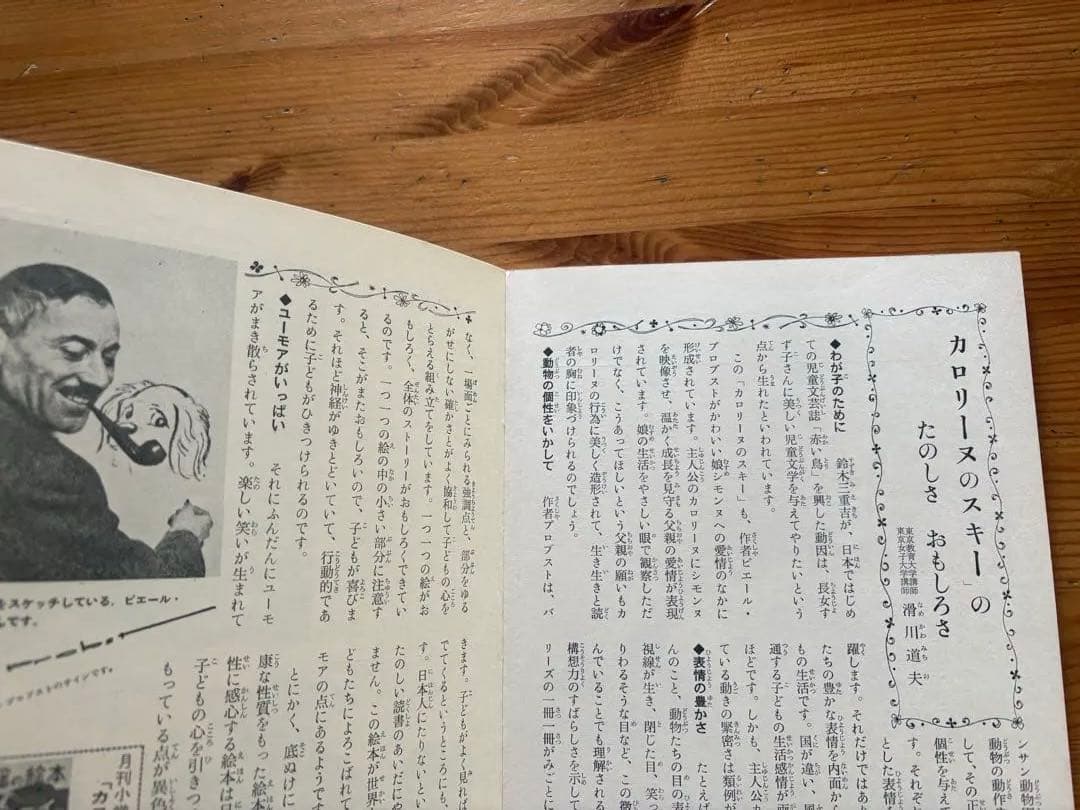 カロリーヌのスキー」の
たのしさ おもしろさ
東京教育大学講師
東京女子大学講師
滑川道夫
◆わが子のために
鈴木三重吉が、日本ではじめ
ての児童文芸誌「赤い鳥」を興した動因は、長女す
ず子さんに美しい児童文学を与えてやりたいという
点から生れたといわれています。
この「カロリーヌのスキー」も、作者ピエール・
プロブストがかわい娘シモンヌへの愛情のなかに
形成されています。主人公のカロリーヌにシモンヌ
を映像させ、温かく成長を見守る父親の愛情が表現
されています。娘の生活をやさしい眼で観察しただ
けでなく、こうあってほしいという父親の願いもカ
ロリーヌの行為に美しく造形されて、生き生きと読
者の胸に印象づけられるのでしょう。
◆動物の個性をいかして
作者プロブストは、パ
ンサン動物
動物の動作
して、その正
個性を与え
す。それぞ
とした表情
躍します。それだけではあ
たちの豊かな表情を内面か
もの生活です。国が違い、風
通する子どもの生活感情が画
ほどです。しかも、主人公
ている動きの緊密さは類例が
◆表情の豊かさ
たとえば
んのこと、動物たちの目の表
視線が生き、閉じた目、笑っ
りわるそうな目など、この微
んでいることでも理解される
構想力のすばらしさを示して
リーズの一冊一冊がみごとに
なく、一場面ごとにみられる強調点と、部分をゆる
がせにしない確かさとがよく協和して子どもの心を
とらえる組み立てをしています。一つ一つの絵がお
もしろく、全体のストーリーがおもしろくできてい
るのです。一つ一つの絵の中の小さい部分に注意す
ると、そこがまたおもしろいので、子どもが喜びま
す。それほど神経がゆきとどいていて、行動的であ
るために子どもがひきつけられるのです。
◆ユーモアがいっぱい
それにふんだんにユーモ
アがまき散らされています。楽しい笑いが生まれて
きます。子どもがよく見れば
でてくるというところにも、
す。日本人にたりないとい
たのしい読書のあいだにや
ません。この絵本が世界
どもたちによろこばれて
モアの点にあるようです
とにかく、底ぬけに
康な性質をもった絵本
性に感心する絵本は
子どもの心を引きつ
もっている点が異色
をスケッチしている，ピエール・
んです。
プロブストのサインです。
の絵本
月刊小
「カ